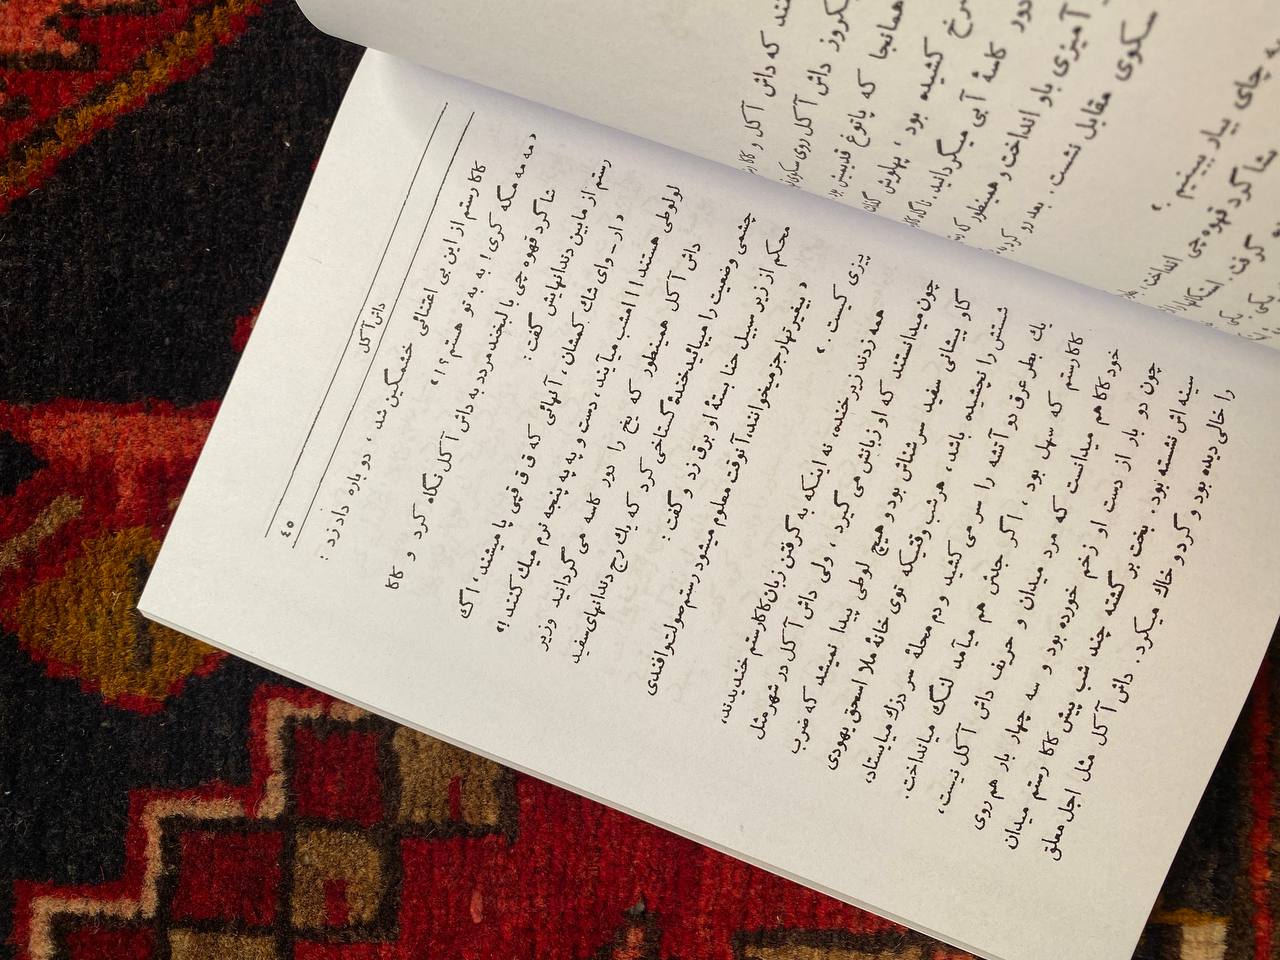 داش آکل
٤٥
کاکا رستم از این بی اعتنائی خشمگین شد ، دو باره داد زد :
« مه مه مگه کری ! به به تو هستم ؟ ! »
شاگرد قهوه چی با لبخند مردد به داش آکل نگاه کرد و کاکا
رستم از مابین دندانهایش گفت :
« ار - وای شك کمشان ، آنهائی که ق ق قپی پا میشند ، اگ
لولوطی هستند ا ا امشب میآیند ، دست و په په پنجه نرم میك کنند ! »
داش آکل همینطور که یخ را دور کاسه می گردانید وزیر
چشمی وضعیت را میپائید خندهٔ گستاخی کرد که یك رج دندانهای سفید
محکم از زیر سبیل حنا بستهٔ او برق زد و گفت :
« بیغیرتها رجز میخوانند ، آنوقت معلوم میشود رستم صولت و افندی
پیزی کیست . »
همه زدند زیر خنده ، نه اینکه به گرفتن زبان کاکا رستم خندیدند ،
چون میدانستند که او زبانش می گیرد ، ولی داش آکل در شهر مثل
گاو پیشانی سفید سرشناس بود و هیچ لوطی پیدا نمیشد که ضرب
شستش را نچشیده باشد ، هر شب وقتیکه توی خانهٔ ملا اسحق یهودی
یك بطر عرق دو آتشه را سر می کشید و دم محلهٔ سر دزك میایستاد ،
کاکا رستم که سهل بود ، اگر جدش هم میآمد لنگ میانداخت .
خود کاکا هم میدانست که مرد میدان و حریف داش آکل نیست ،
چون دو بار از دست او زخم خورده بود و سه چهار بار هم روی
سینه اش نشسته بود . بخت بر گشته چند شب پیش کاکا رستم میدان
را خالی دیده بود و گرد و خاك میکرد . داش آکل مثل اجل معلق
که داش آکل و کاکا
یکروز داش آکل روی
همانجا که پاتوغ قدیمیش
کشیده بود ، پهلوش
دور کاسهٔ آبی میگردانید .
آمیزی باو انداخت و همینطور که
سکوی مقابل نشست . بعد رو کرد
یه چای بیار ببینیم . »
شاگرد قهوه چی